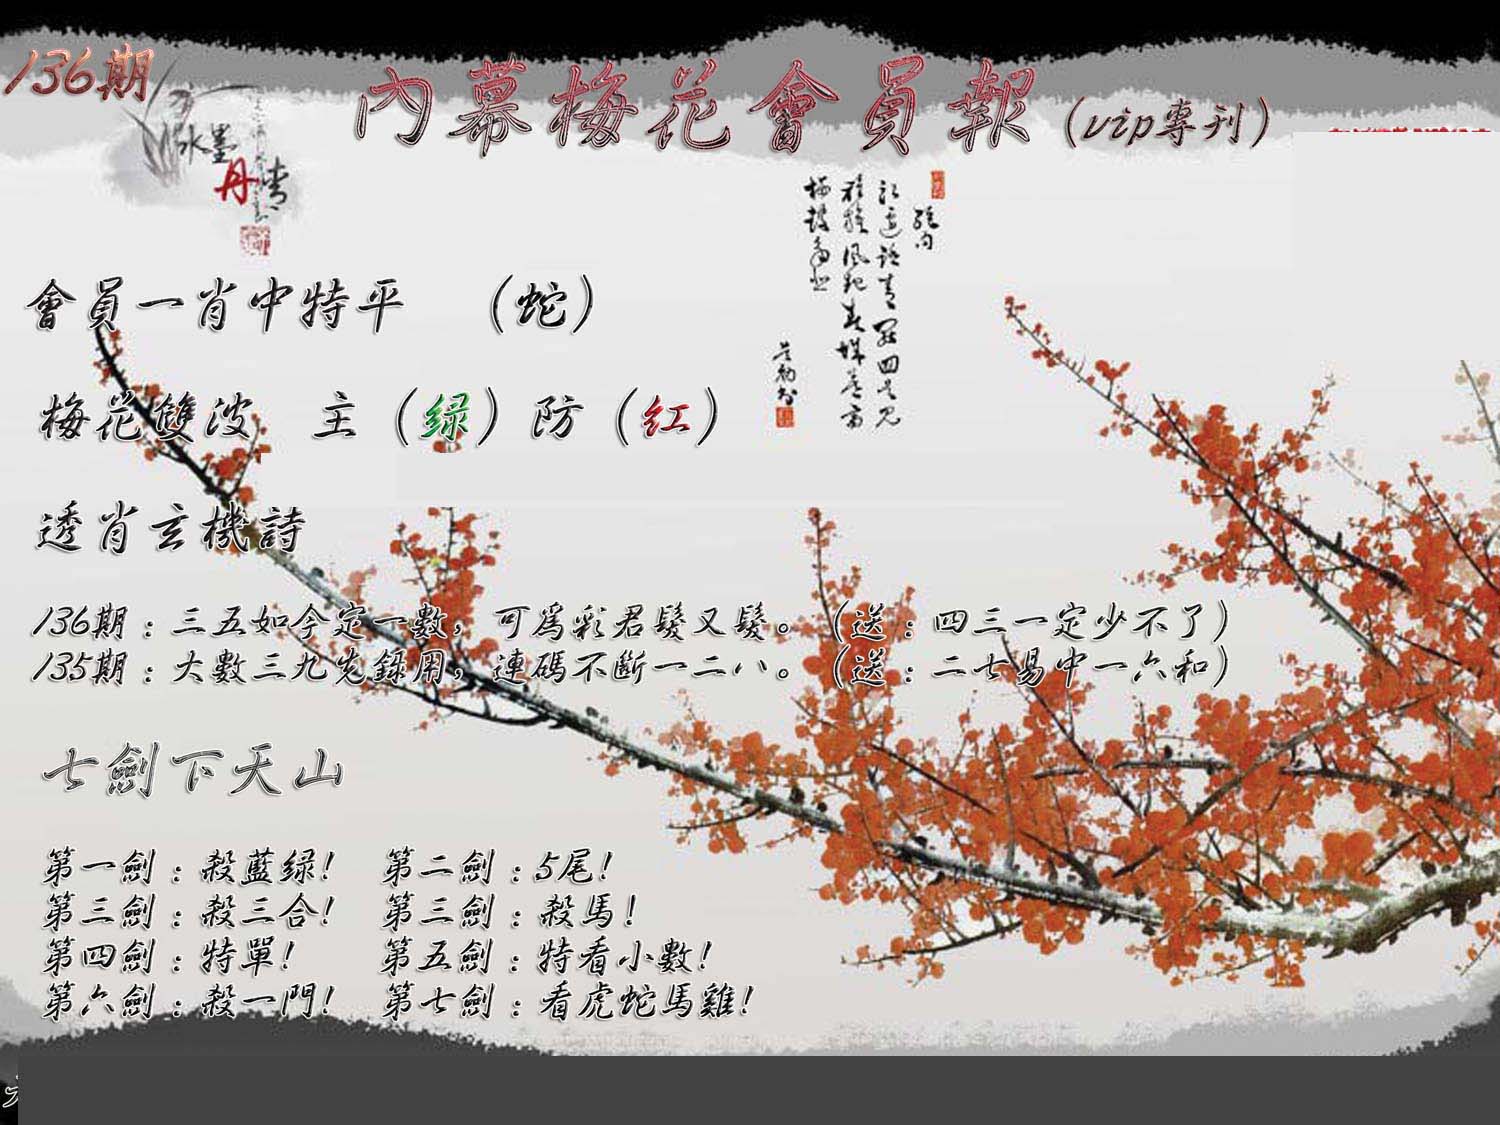 136期
內幕梅花會員報(vip專刊)
水墨
丹青
會員一肖中特平 (蛇)
梅花雙波 主(绿)防(红)
透肖玄機詩
136期:三五如今定一數,可為彩君髮又髮。(送:四三一定少不了)
135期:大數三九先錄用,連碼不斷一二八。(送:二七易中一六和)
七劍下天山
第一劍:殺藍绿! 第二劍:5尾!
第三劍:殺三合! 第三劍:殺馬!
第四劍:特單! 第五劍:特看小數!
第六劍:殺一門! 第七劍:看虎蛇馬雞!